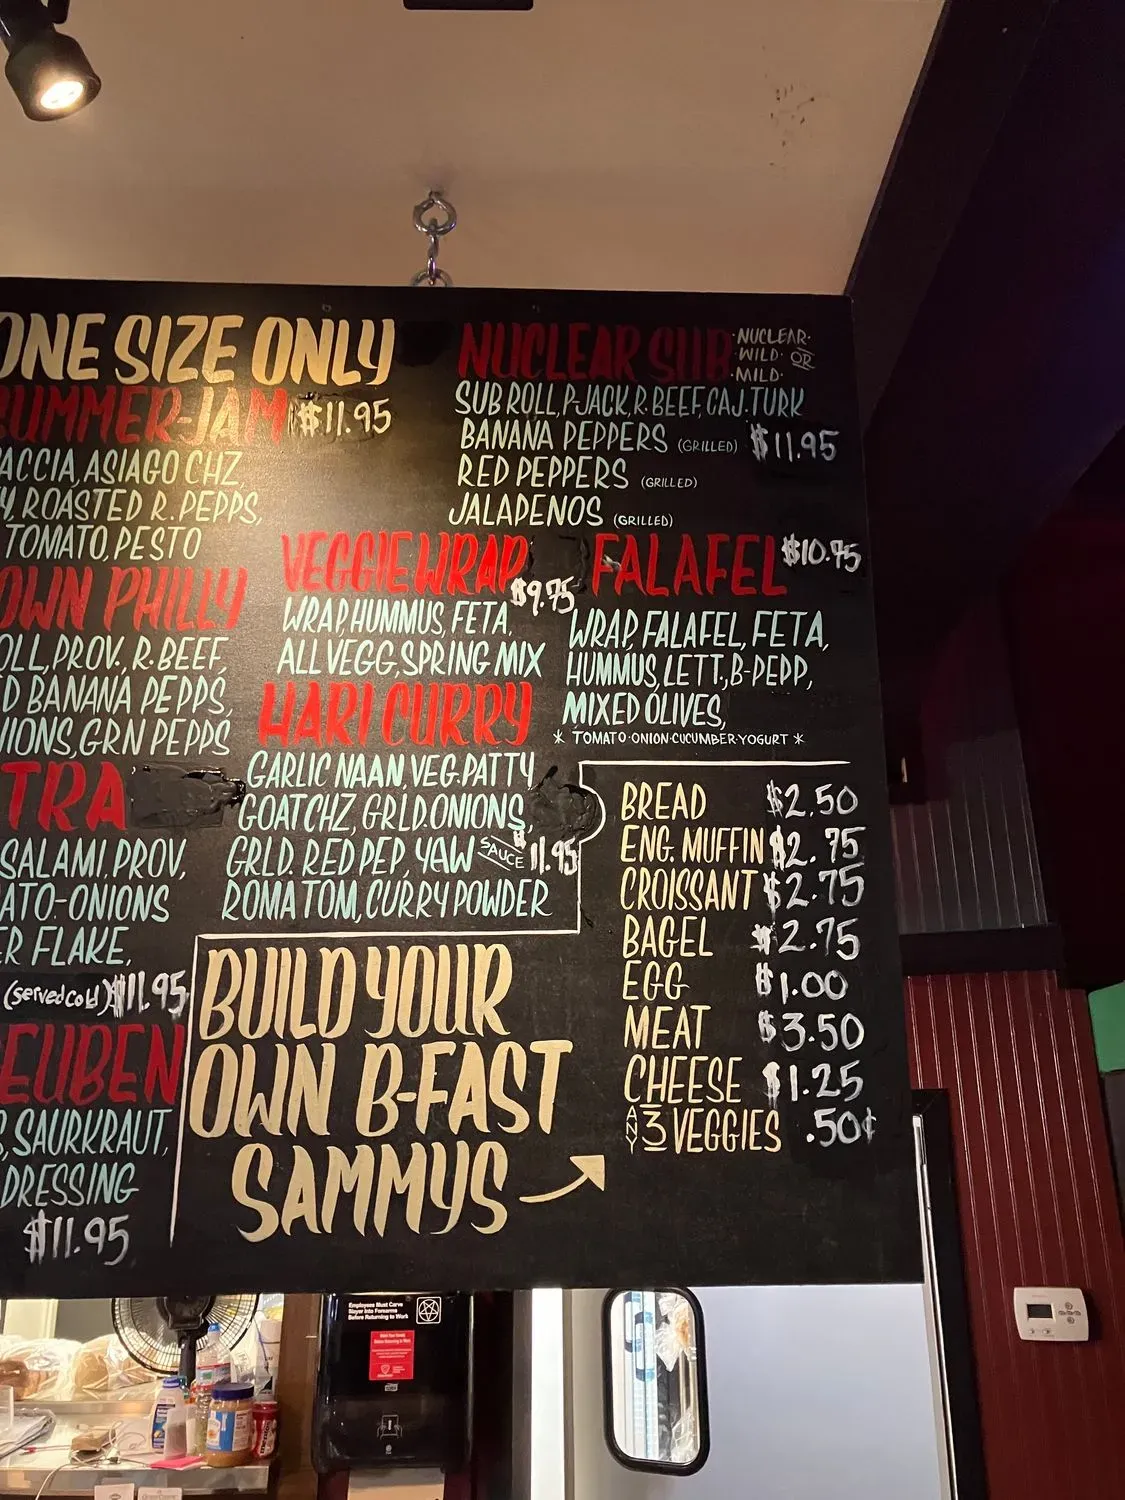 ONE SIZE ONLY
SUMMER-JAM $11.95
ACCIA, ASIAGO CHZ,
Y, ROASTED R. PEPPS,
TOMATO, PESTO
OWN PHILLY
OLL, PROV., R. BEEF,
D BANANA PEPPS,
IONS, GRN PEPPS
TRA
SALAMI, PROV,
ATO-ONIONS
ER FLAKE,
(served cold) $11.95
EUBEN
S, SAURKRAUT,
DRESSING
$11.95
NUCLEAR SUB
·NUCLEAR·
·WILD· OR
·MILD·
SUB ROLL, P-JACK, R. BEEF, CAJ. TURK
BANANA PEPPERS (GRILLED) $11.95
RED PEPPERS (GRILLED)
JALAPENOS (GRILLED)
VEGGIE WRAP
$9.75
WRAP, HUMMUS, FETA,
ALL VEGG, SPRING MIX
FALAFEL $10.75
WRAP, FALAFEL, FETA,
HUMMUS, LETT., B-PEPP,
MIXED OLIVES,
* TOMATO·ONION·CUCUMBER·YOGURT *
HARI CURRY
GARLIC NAAN, VEG. PATTY
GOAT CHZ, GRLD. ONIONS,
GRLD. RED PEP, YAW SAUCE $11.95
ROMA TOM, CURRY POWDER
BUILD YOUR
OWN B-FAST
SAMMYS
BREAD $2.50
ENG. MUFFIN $2.75
CROISSANT $2.75
BAGEL $2.75
EGG $1.00
MEAT $3.50
CHEESE $1.25
ANY 3 VEGGIES .50¢
Employees Must Carve
Slayer Into Forearms
Before Returning to Work